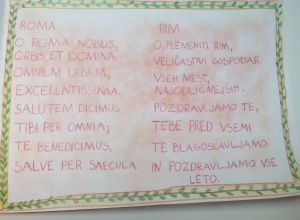 ROMA
O ROMA NOBILIS,
ORBIS ET DOMINA.
OMNIUM URBIUM,
EXCELLNTISSIMA.
SALUTEM DICIMUS
TIBI PER OMNIA;
TE BENEDICIMUS,
SALVE PER SAECULA.
RIM
O, PLEMENITI RIM,
VELIČASTNI GOSPODAR.
VSEH MEST,
NAJODLIČNEJŠIH.
POZDRAVLJAMO TE,
TEBE PRED VSEMI
TE BLAGOSLAVLJAMO
IN POZDRAVLJAMO VSE
LETO.